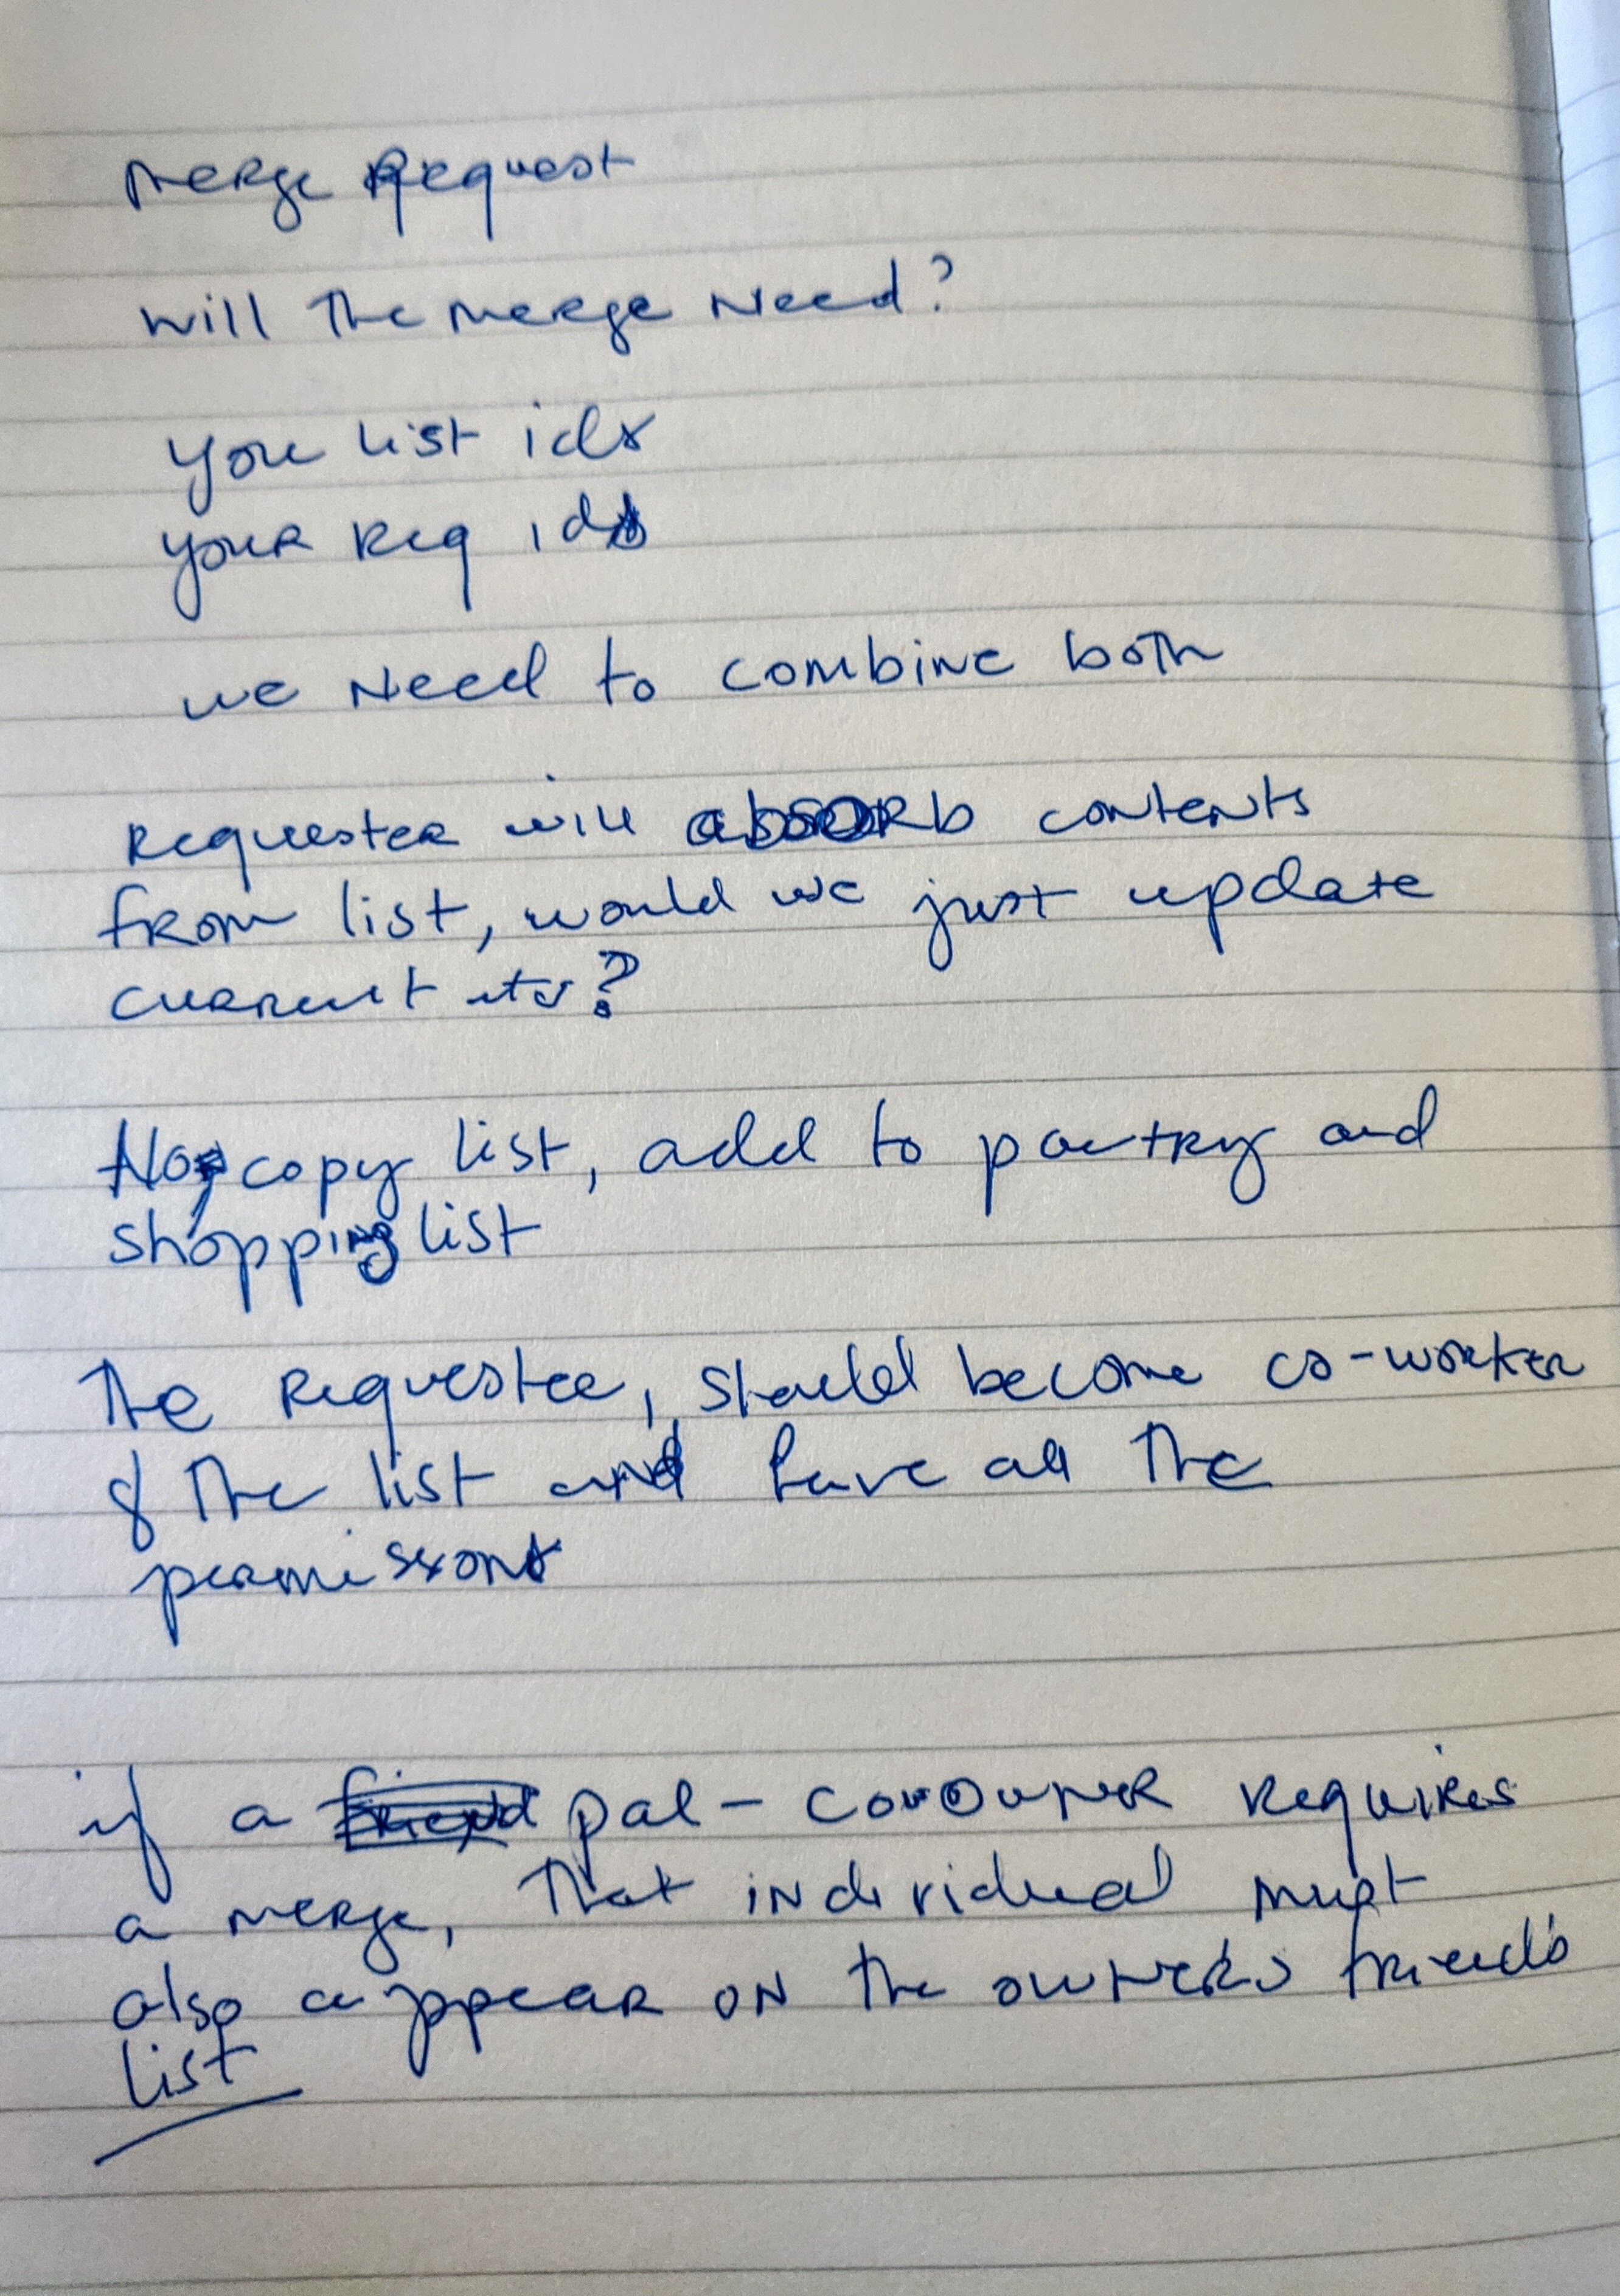 Merge Request
Will The Merge Need?
your list ids
your Req ids
we Need to combine both
Requester will absorb contents
from list, would we just update
current
No, copy list, add to pantry and
shopping list
The Requestee, should become co-worker
of the list and have all the
permissions
if a friend pal - coowner Requires
a merge, That individual must
also appear ON the owners friends
list